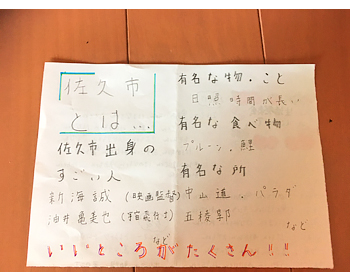 佐久市
とは...
佐久市出身の
すごい人
新海誠(映画監督)
油井亀美也(宇宙飛行士)
など
有名な物・こと
日照時間が長い
有名な食べ物
プルーン・鯉
有名な所
中山道・パラダ
五稜郭
など
いいところがたくさん!!!